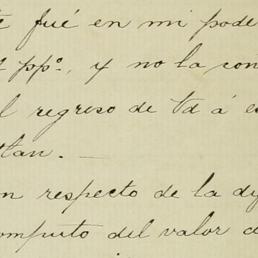 fué en mi pode
ppº, y no la con
l regreso de Vd á e
tlan. —
n respecto de la dif
omputo del valor d